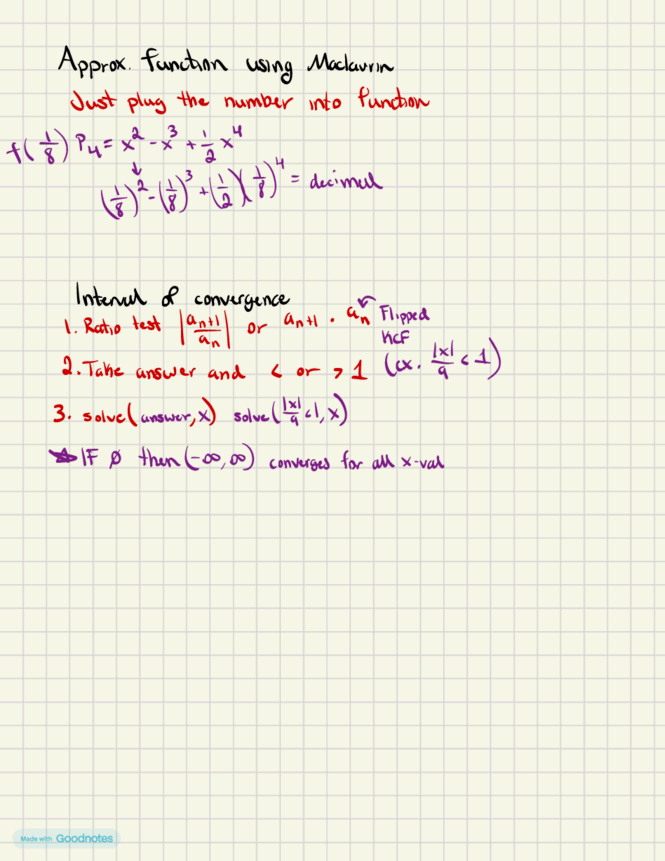 Approx. function using Maclaurin
Just plug the number into function
f(1/8) P₄ = x² - x³ + 1/2 x⁴
↓
(1/8)² - (1/8)³ + (1/2)(1/8)⁴ = decimal
Interval of convergence
1. Ratio test |aₙ₊₁/aₙ| or aₙ₊₁ · aₙ Flipped
KCF
2. Take answer and < or > 1 (ex. |x|/9 < 1)
3. solve(answer, x) solve(|x|/9 < 1, x)
★ IF ∅ then (-∞, ∞) converges for all x-val
Made with Goodnotes